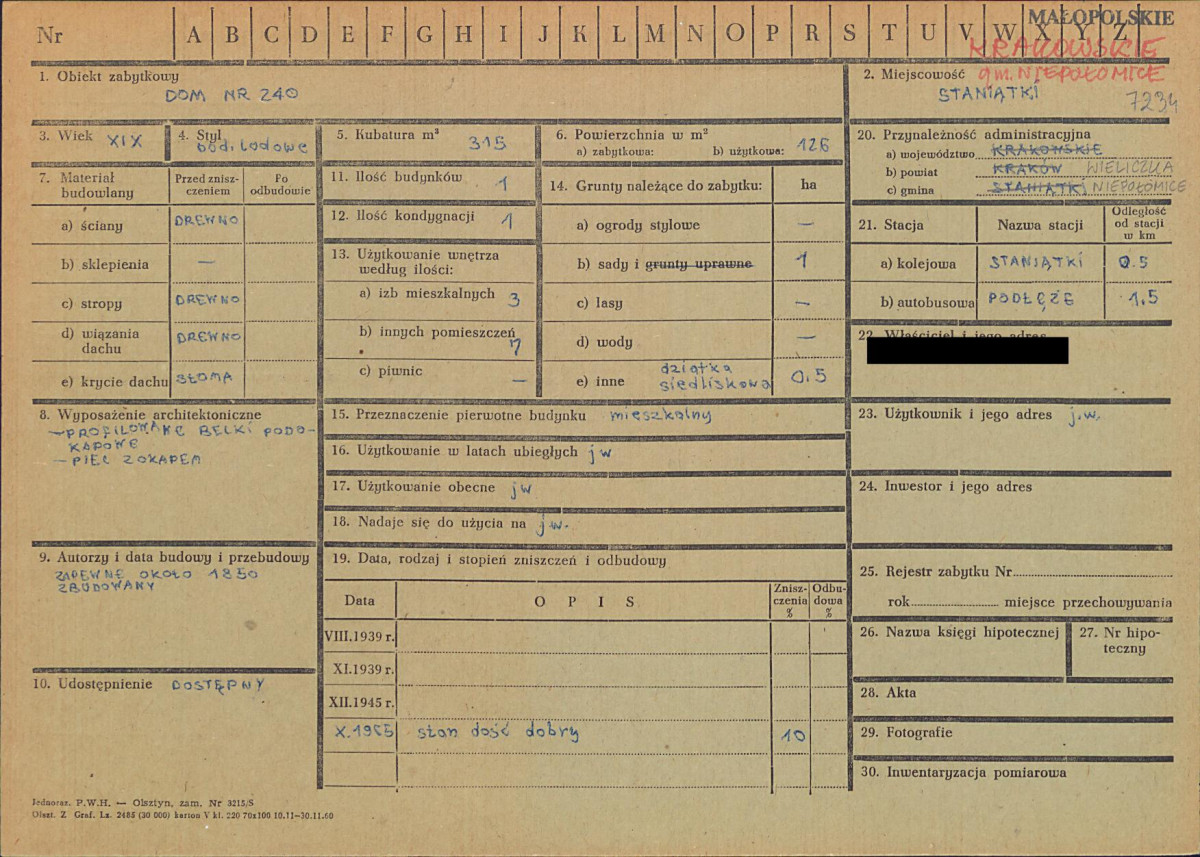 Nr A B C D E F G H I J K L M N O P R S T U V W X Y Z
MAŁOPOLSKIE
KRAKOWSKIE
gm. NIEPOŁOMICE
1. Obiekt zabytkowy
DOM NR 240
2. Miejscowość
STANIĄTKI
7234
3. Wiek XIX
4. Styl
bud. ludowe
5. Kubatura m³
315
6. Powierzchnia w m²
a) zabytkowa: b) użytkowa: 126
7. Materiał budowlany
Przed zniszczeniem
Po odbudowie
a) ściany DREWNO
b) sklepienia —
c) stropy DREWNO
d) wiązania dachu DREWNO
e) krycie dachu SŁOMA
8. Wyposażenie architektoniczne
— PROFILOWANE BELKI PODO-
KAPOWE
— PIEC Z OKAPEM
9. Autorzy i data budowy i przebudowy
ZAPEWNE OKOŁO 1850
ZBUDOWANY
10. Udostępnienie DOSTĘPNY
11. Ilość budynków 1
12. Ilość kondygnacji 1
13. Użytkowanie wnętrza
według ilości:
a) izb mieszkalnych 3
b) innych pomieszczeń 7
c) piwnic —
14. Grunty należące do zabytku: ha
a) ogrody stylowe —
b) sady i grunty uprawne 1
c) lasy —
d) wody —
e) inne działka
siedliskowa 0.5
15. Przeznaczenie pierwotne budynku mieszkalny
16. Użytkowanie w latach ubiegłych jw
17. Użytkowanie obecne jw
18. Nadaje się do użycia na j.w.
19. Data, rodzaj i stopień zniszczeń i odbudowy
Data OPIS Zniszczenia % Odbudowa %
VIII.1939 r.
XI.1939 r.
XII.1945 r.
X.1965 stan dość dobry 10
20. Przynależność administracyjna
a) województwo KRAKOWSKIE
b) powiat KRAKÓW WIELICZKA
c) gmina STANIĄTKI NIEPOŁOMICE
21. Stacja Nazwa stacji Odległość od stacji w km
a) kolejowa STANIĄTKI 0.5
b) autobusowa PODŁĘŻE 1.5
22. Właściciel i jego adres
23. Użytkownik i jego adres j.w.
24. Inwestor i jego adres
25. Rejestr zabytku Nr
rok miejsce przechowywania
26. Nazwa księgi hipotecznej
27. Nr hipo-
teczny
28. Akta
29. Fotografie
30. Inwentaryzacja pomiarowa
Jednoraz. P.W.H. — Olsztyn, zam. Nr 3215/S
Olszt. Z. Graf. Lz. 2485 (30 000) karton V kl. 220 70x100 10.11—30.11.60